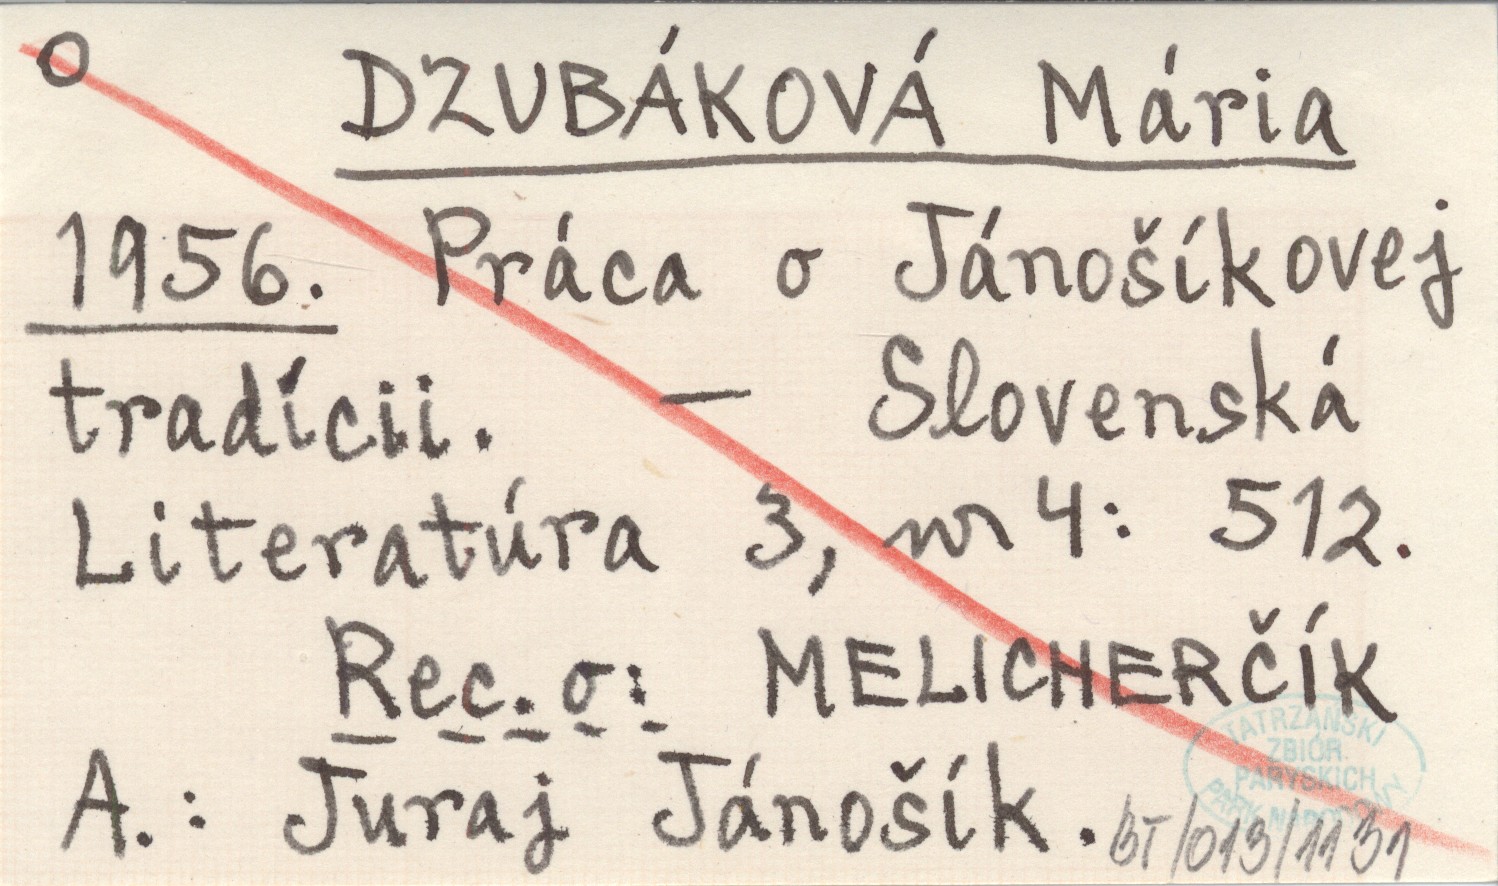 O DZUBÁKOVÁ Mária
1956. Práca o Jánošíkovej
tradícii. — Slovenská
Literatúra 3, nr 4: 512.
Rec. o: MELICHERČÍK
A.: Juraj Jánošík.
TATRZAŃSKI
ZBIÓR
PARYSKICH
PARK NARODOWY
BT/013/1131